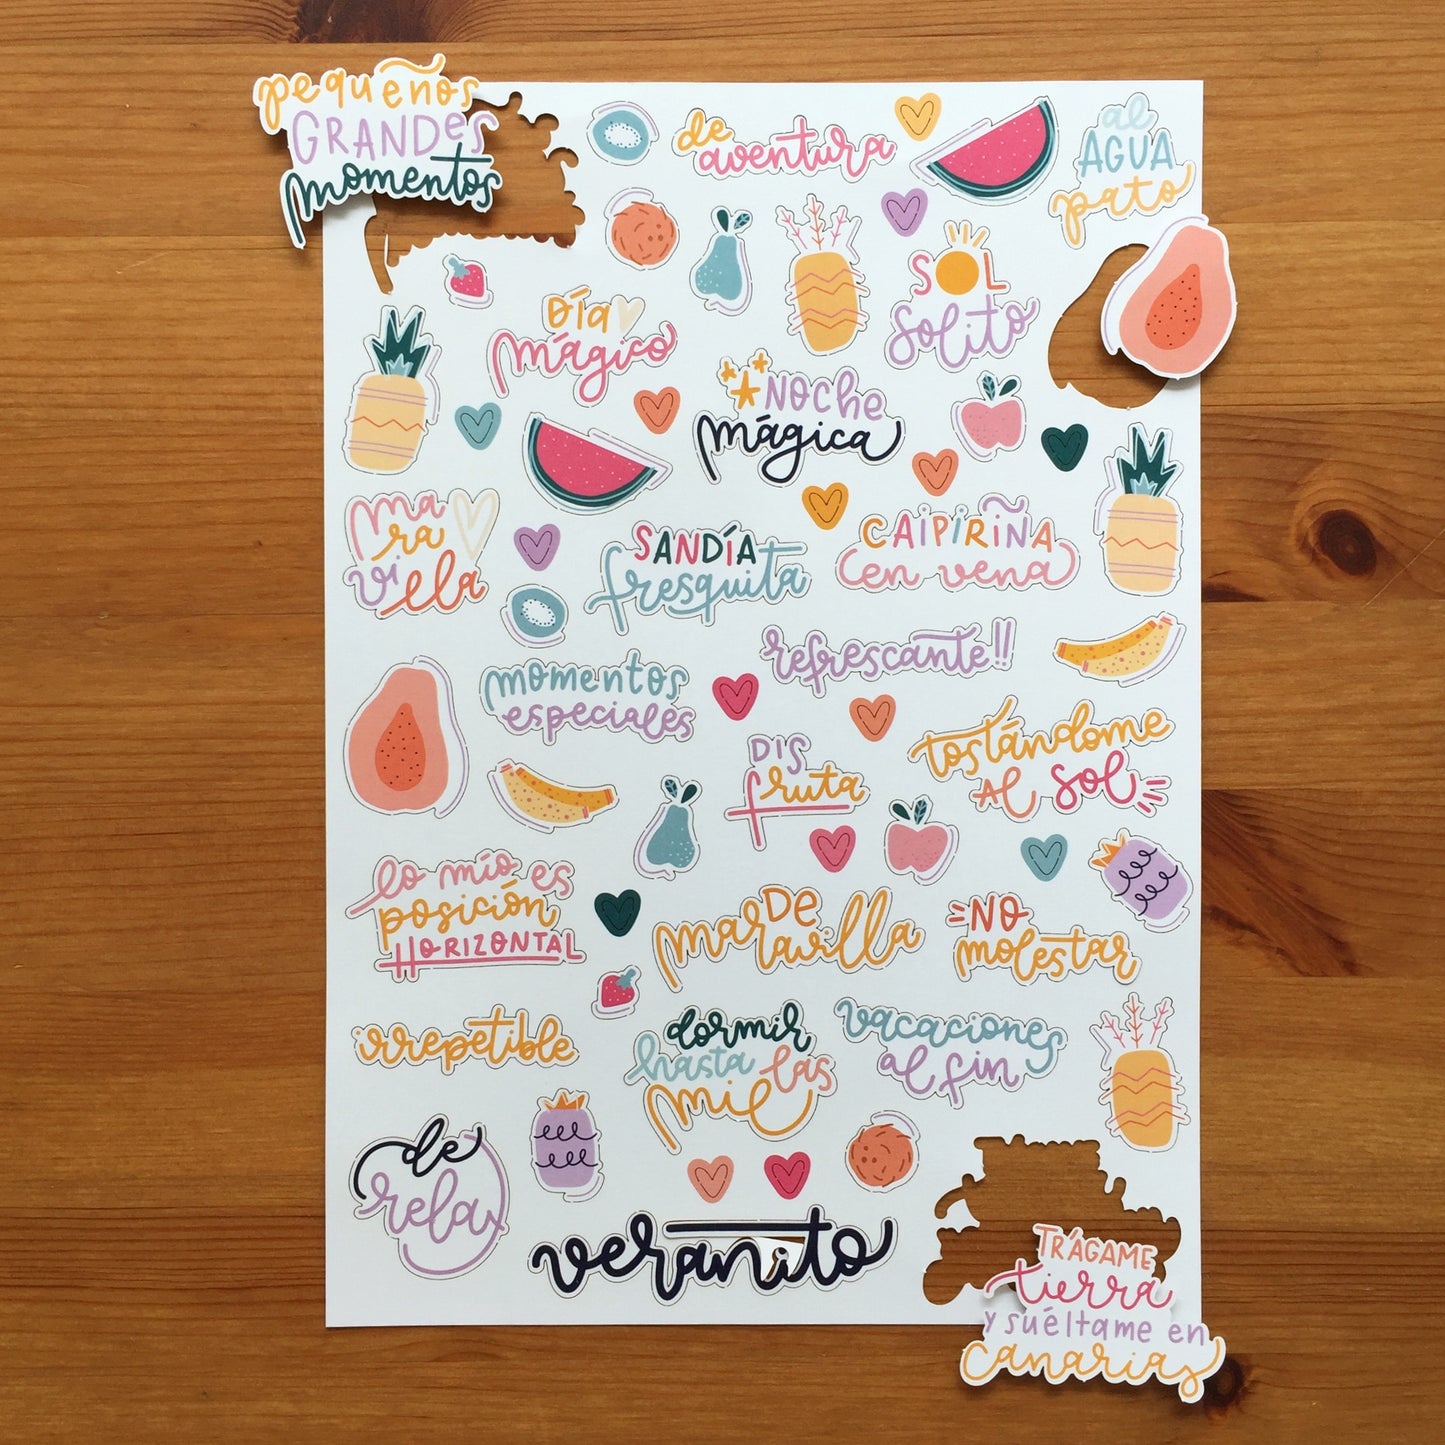 pequeños
GRANDES
momentos
de
aventura
al
AGUA
pato
SOL
solito
Día
mágico
NOCHE
mágica
ma
ra
vi
lla
SANDÍA
fresquita
CAIPIRIÑA
en vena
refrescante!!
momentos
especiales
DIS
fruta
tostándome
Al sol
lo mío es
posición
HORIZONTAL
DE
maravilla
NO
molestar
irrepetible
dormir
hasta las
mil
vacaciones
al fin
de
relax
veranito
TRÁGAME
tierra
y suéltame en
canarias